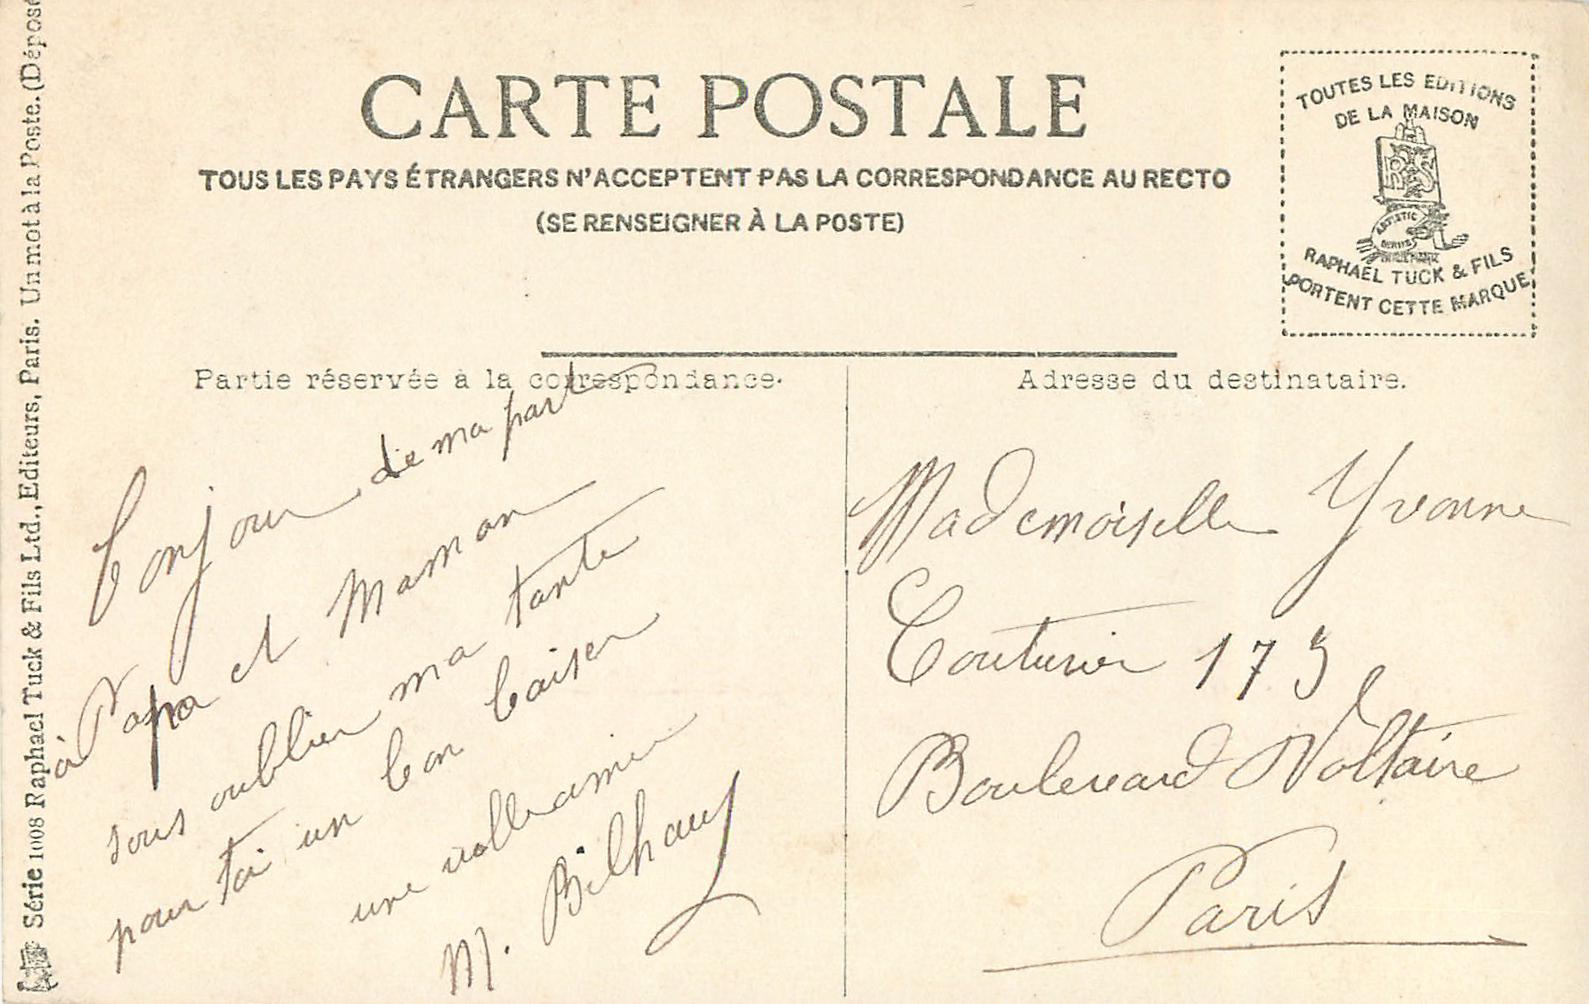 CARTE POSTALE
TOUS LES PAYS ÉTRANGERS N'ACCEPTENT PAS LA CORRESPONDANCE AU RECTO
(SE RENSEIGNER À LA POSTE)
TOUTES LES EDITIONS
DE LA MAISON
ARTISTIC
SERIES
RAPHAEL TUCK & FILS
PORTENT CETTE MARQUE
Série 1008 Raphael Tuck & Fils Ltd., Editeurs, Paris. Un mot à la Poste. (Déposé
Partie réservée à la correspondance.
bonjour de ma part
à Papa et Maman
sous oublier ma tante
pour toi un bon baiser
une
M. Bilhaut
Adresse du destinataire.
Mademoiselle Yvonne
Couturier 173
Boulevard Voltaire
Paris